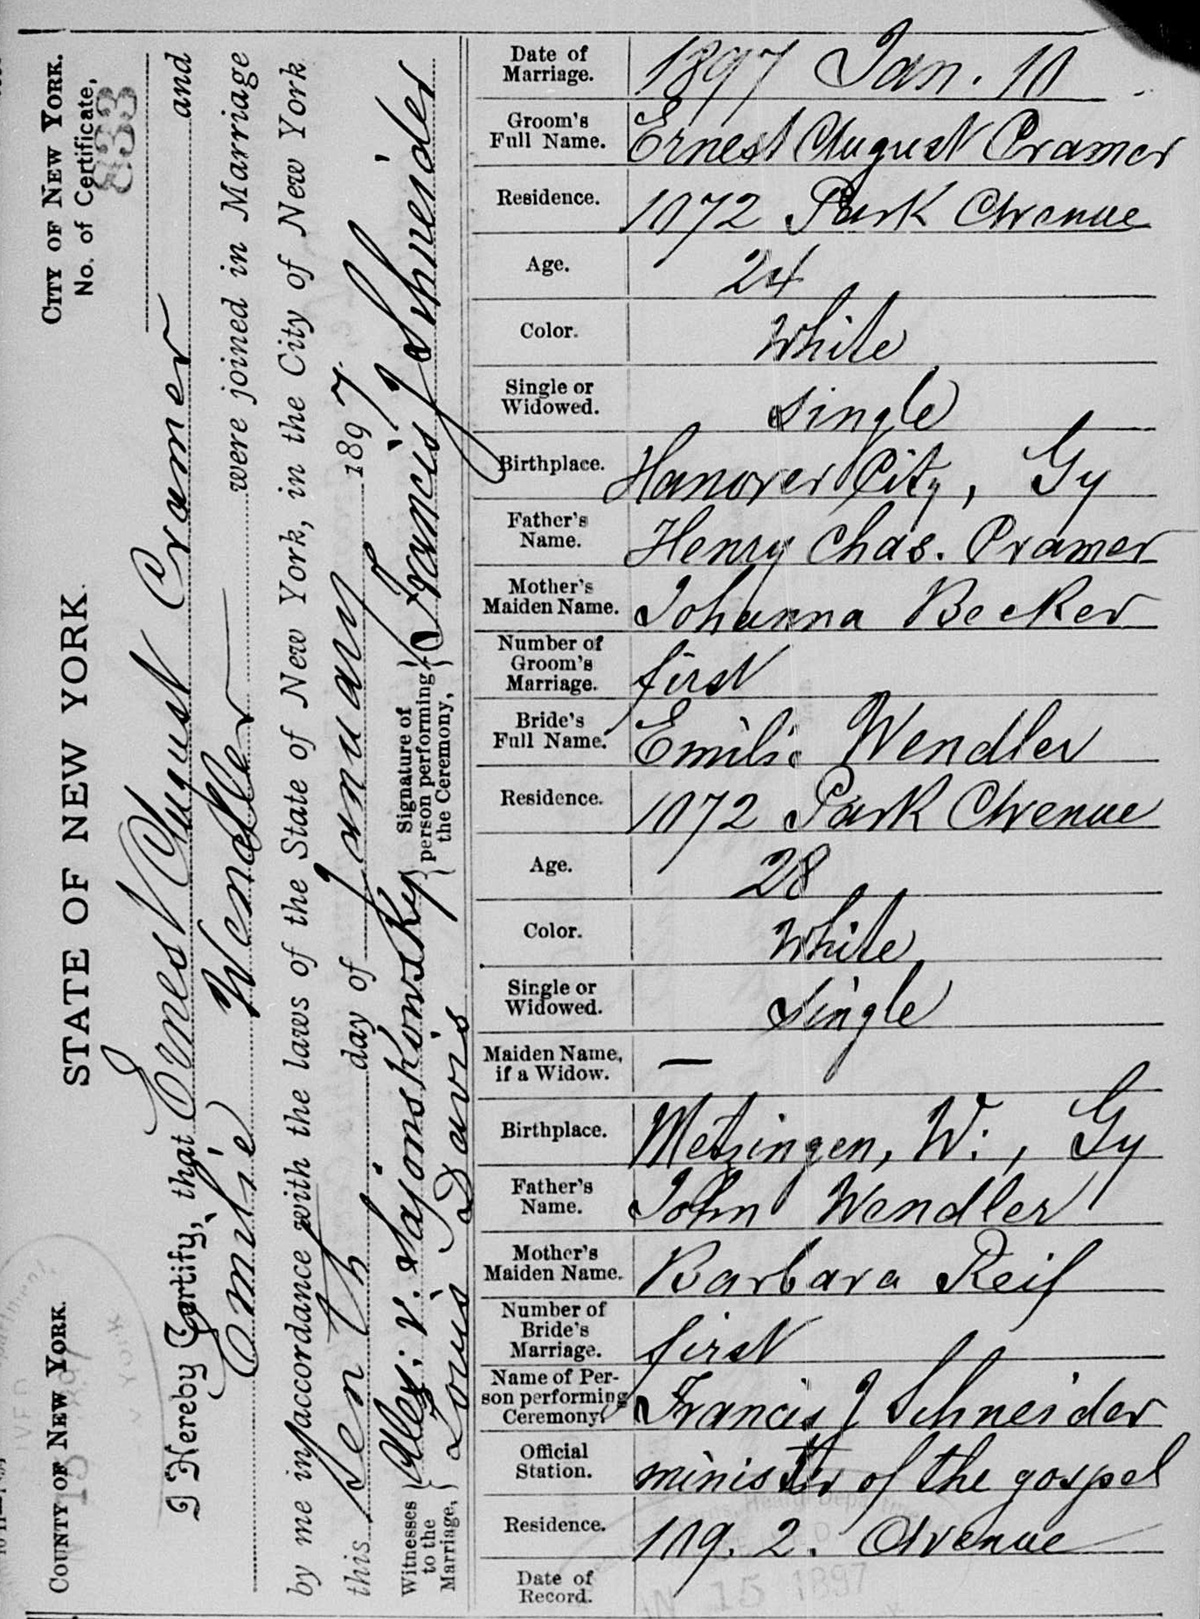 COUNTY OF NEW YORK.
STATE OF NEW YORK.
CITY OF NEW YORK.
No. of Certificate,
833
I Hereby Certify, that Ernest August Cramer and
Emilie Wendler were joined in Marriage
by me in accordance with the laws of the State of New York, in the City of New York
this tenth day of January 1897
Witnesses to the Marriage, { Alex: v.
Louis Davis
Signature of person performing the Ceremony, { Francis J Schneider
Date of Marriage. 1897 Jan. 10
Groom's Full Name. Ernest August Cramer
Residence. 1072 Park Avenue
Age. 24
Color. White
Single or Widowed. single
Birthplace. Hanover City, Gy
Father's Name. Henry Chas. Cramer
Mother's Maiden Name. Johanna Becker
Number of Groom's Marriage. first
Bride's Full Name. Emilie Wendler
Residence. 1072 Park Avenue
Age. 28
Color. White
Single or Widowed. single
Maiden Name, if a Widow. —
Birthplace. Metzingen, W., Gy
Father's Name. John Wendler
Mother's Maiden Name. Barbara Reif
Number of Bride's Marriage. first
Name of Person performing Ceremony. Francis J Schneider
Official Station. minister of the gospel
Residence. 109. 2. Avenue
Date of Record. 15 1897